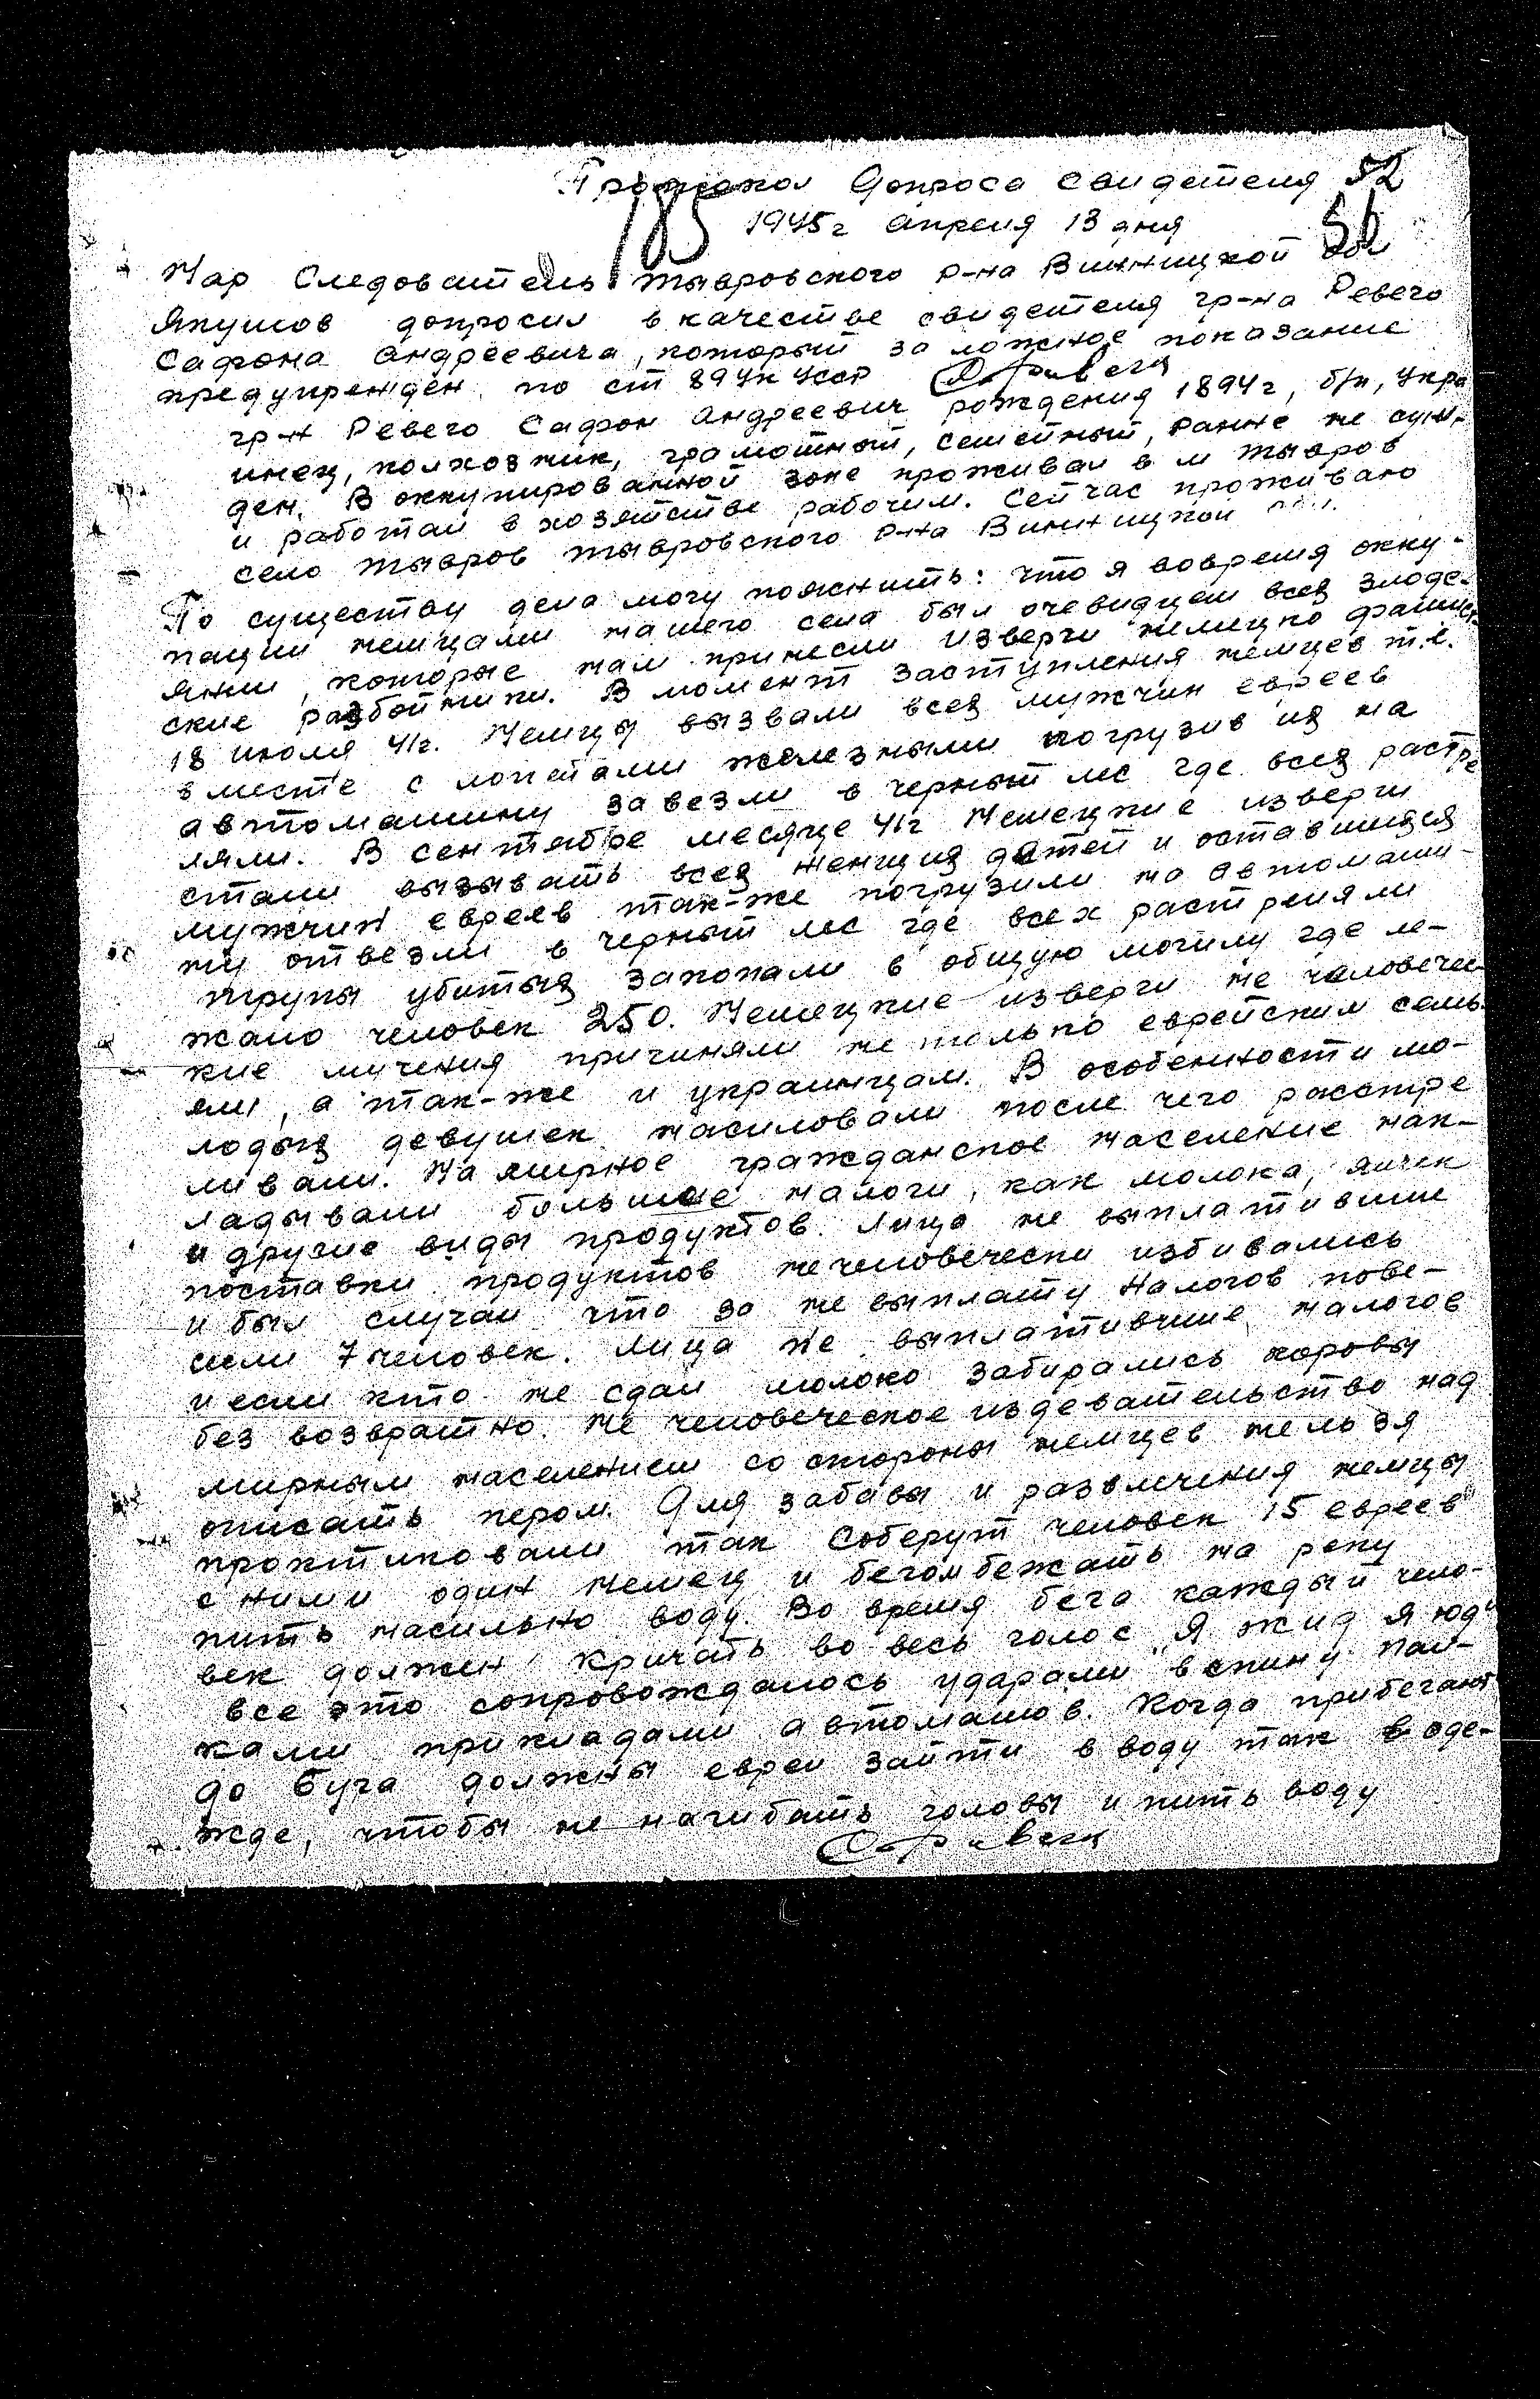 Протокол Допроса Свидетеля 52
185 1945г апреля 13 дня 56
Нар Следователь Тывровского р-на Винницкой обл
Якушов допросил в качестве свидетеля гр-на Ревего
Сафона Андреевича, который за ложное показание
предупрежден по ст 89 УК УССР
гр-н Ревего Сафон Андреевич рождения 1894г, б/п, укра
инец, колхозник, грамотный, семейный, ранне не суж.
ден. В оккупированной зоне проживал в м Тывров
и работал в хозяйстве рабочим. Сейчас проживаю
село Тывров Тывровского р-на Винницкой обл.
По существу дела могу пояснить: что я вовремя окку-
пации немцами нашего села был очевидцем всех злоде-
яний, которые нам принесли изверги немецко фашист-
ские разбойники. В момент заступления немцев т.е.
18 июля 41г. Немцы вызвали всех мужчин евреев
вместе с лопатами железными погрузив их на
автомашину завезли в черный лес где всех растре
ляли. В сентябре месяце 41г Немецкие изверги
стали вызывать всех женщих детей и оставшихся
мужчин евреев так-же погрузили на автомаши-
ну отвезли в черный лес где всех растреляли
трупы убитых закопали в общую могилу где ле-
жало человек 250. Немецкие изверги не человечес-
кие мучения причиняли не только еврейским семь-
ям, а так-же и украинцам. В особенности мо-
лодых девушек насиловали после чего расстре
ливали. На мирное гражданское население нак-
ладывали большое налоги, как молока, яичек
и другие виды продуктов. Лица не выплатившие
поставки продуктов нечеловечески избивались
и был случаи что за не выплату налогов пове-
сили 7 человек. Лица не выплатившие налогов
и если кто не сдал молоко забирались коровы
без возвратно. Не человеческое издевательство над
мирным населением со стороны немцев нельзя
описать пером. Для забавы и развлечения немцы
проктиковали так Соберут человек 15 евреев
с ними один немец и бегом бежать на реку
пить насильно воду. Во время бега каждый чело-
век должен кричать во весь голос „Я жид я юд"
все это сопровождалось ударами в спину пал-
ками прикладами автоматов. Когда прибегают
до Буга должны евреи зайти в воду так в оде-
жде, чтобы не нагибать головы и пить воду